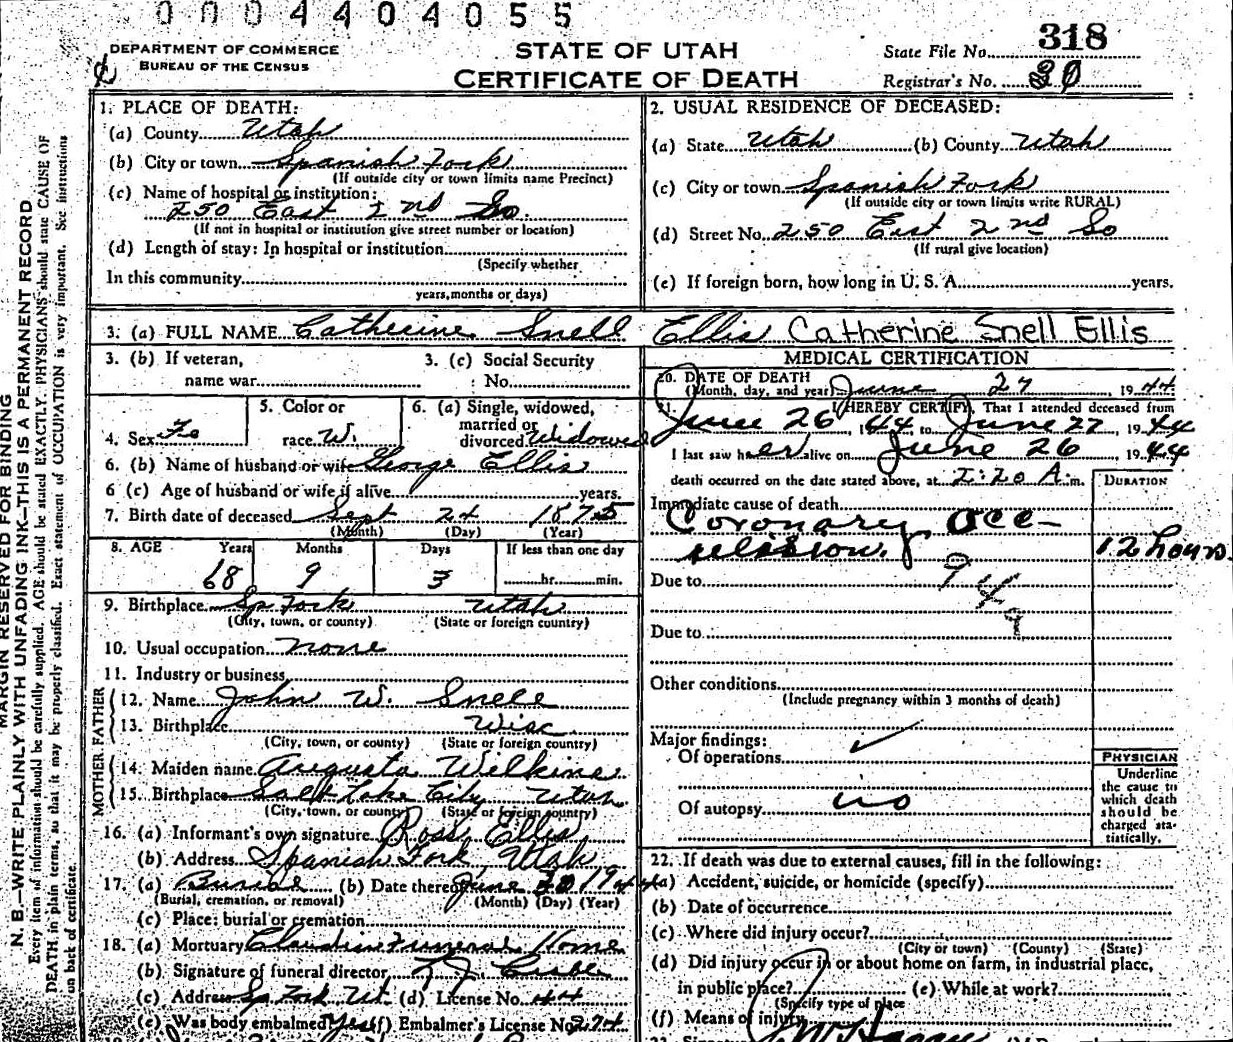 0004404055
DEPARTMENT OF COMMERCE
BUREAU OF THE CENSUS
STATE OF UTAH
CERTIFICATE OF DEATH
State File No. 318
Registrar's No. 30
MARGIN RESERVED FOR BINDING
N. B.—WRITE PLAINLY WITH UNFADING INK—THIS IS A PERMANENT RECORD
Every item of information should be carefully supplied. AGE should be stated EXACTLY. PHYSICIANS should state CAUSE OF
DEATH in plain terms, so that it may be properly classified. Exact statement of OCCUPATION is very important. See instructions
on back of certificate.
1. PLACE OF DEATH:
(a) County Utah
(b) City or town Spanish Fork
(If outside city or town limits name Precinct)
(c) Name of hospital or institution:
250 East 2nd So.
(If not in hospital or institution give street number or location)
(d) Length of stay: In hospital or institution
(Specify whether
In this community
years, months or days)
2. USUAL RESIDENCE OF DECEASED:
(a) State Utah (b) County Utah
(c) City or town Spanish Fork
(If outside city or town limits write RURAL)
(d) Street No. 250 East 2nd So
(If rural give location)
(e) If foreign born, how long in U. S. A. years.
3. (a) FULL NAME Catherine Snell Ellis Catherine Snell Ellis
3. (b) If veteran,
name war
3. (c) Social Security
No.
4. Sex Fe
5. Color or
race W.
6. (a) Single, widowed,
married or
divorced Widowed
6. (b) Name of husband or wife George Ellis
6 (c) Age of husband or wife if alive years.
7. Birth date of deceased Sept 24 1875
(Month) (Day) (Year)
8. AGE Years Months Days If less than one day
68 9 3 hr. min.
9. Birthplace Sp. Fork Utah
(City, town, or county) (State or foreign country)
10. Usual occupation none
11. Industry or business
FATHER
12. Name John W. Snell
13. Birthplace Wisc
(City, town, or county) (State or foreign country)
MOTHER
14. Maiden name Augusta Wilkins
15. Birthplace Salt Lake City Utah
(City, town, or county) (State or foreign country)
16. (a) Informant's own signature Ross Ellis
(b) Address Spanish Fork, Utah
17. (a) Burial (b) Date thereof June 30 1944
(Burial, cremation, or removal) (Month) (Day) (Year)
(c) Place: burial or cremation
18. (a) Mortuary Claudin Funeral Home
(b) Signature of funeral director
(c) Address Sp Fork Ut. (d) License No. 44
(e) Was body embalmed Yes (f) Embalmer's License No. 274
MEDICAL CERTIFICATION
20. DATE OF DEATH
(Month, day, and year) June 27 1944
21. I HEREBY CERTIFY, That I attended deceased from
June 26, 1944 to June 27, 1944
I last saw her alive on June 26 1944
death occurred on the date stated above, at 2:20 A. m.
DURATION
Immediate cause of death
Coronary Occ-
clusion. 12 hours.
Due to 94a
Due to
Other conditions
(Include pregnancy within 3 months of death)
Major findings:
Of operations
Of autopsy no
PHYSICIAN
Underline
the cause to
which death
should be
charged sta-
tistically.
22. If death was due to external causes, fill in the following:
(a) Accident, suicide, or homicide (specify)
(b) Date of occurrence
(c) Where did injury occur?
(City or town) (County) (State)
(d) Did injury occur in or about home on farm, in industrial place,
in public place? (e) While at work?
(Specify type of place
(f) Means of injury